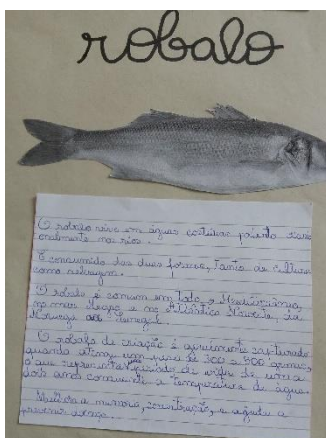 robalo
O robalo vive em águas costeiras
onalmente nos rios.
É consumido das duas formas, tanto de cultura
como selvagem.
O robalo é comum em todo o Mediterrâneo,
no mar Negro e no Atlântico Nordeste, da
Noruega ao Senegal.
O robalo de criação é geralmente capturado
quando atinge um peso de 300 a 500 gramas,
o que representa período de vida de um a
dois anos consoante a temperatura da água.
Melhora a memória, concentração, e ajuda a
prevenir doenças.